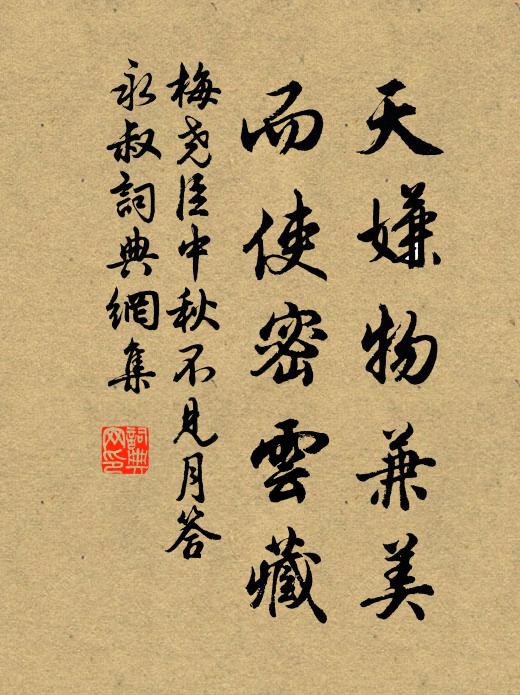 天嫌物兼美
而使密雲藏
梅尧臣中秋不见月答
永叔詞典網集
詞典
网印